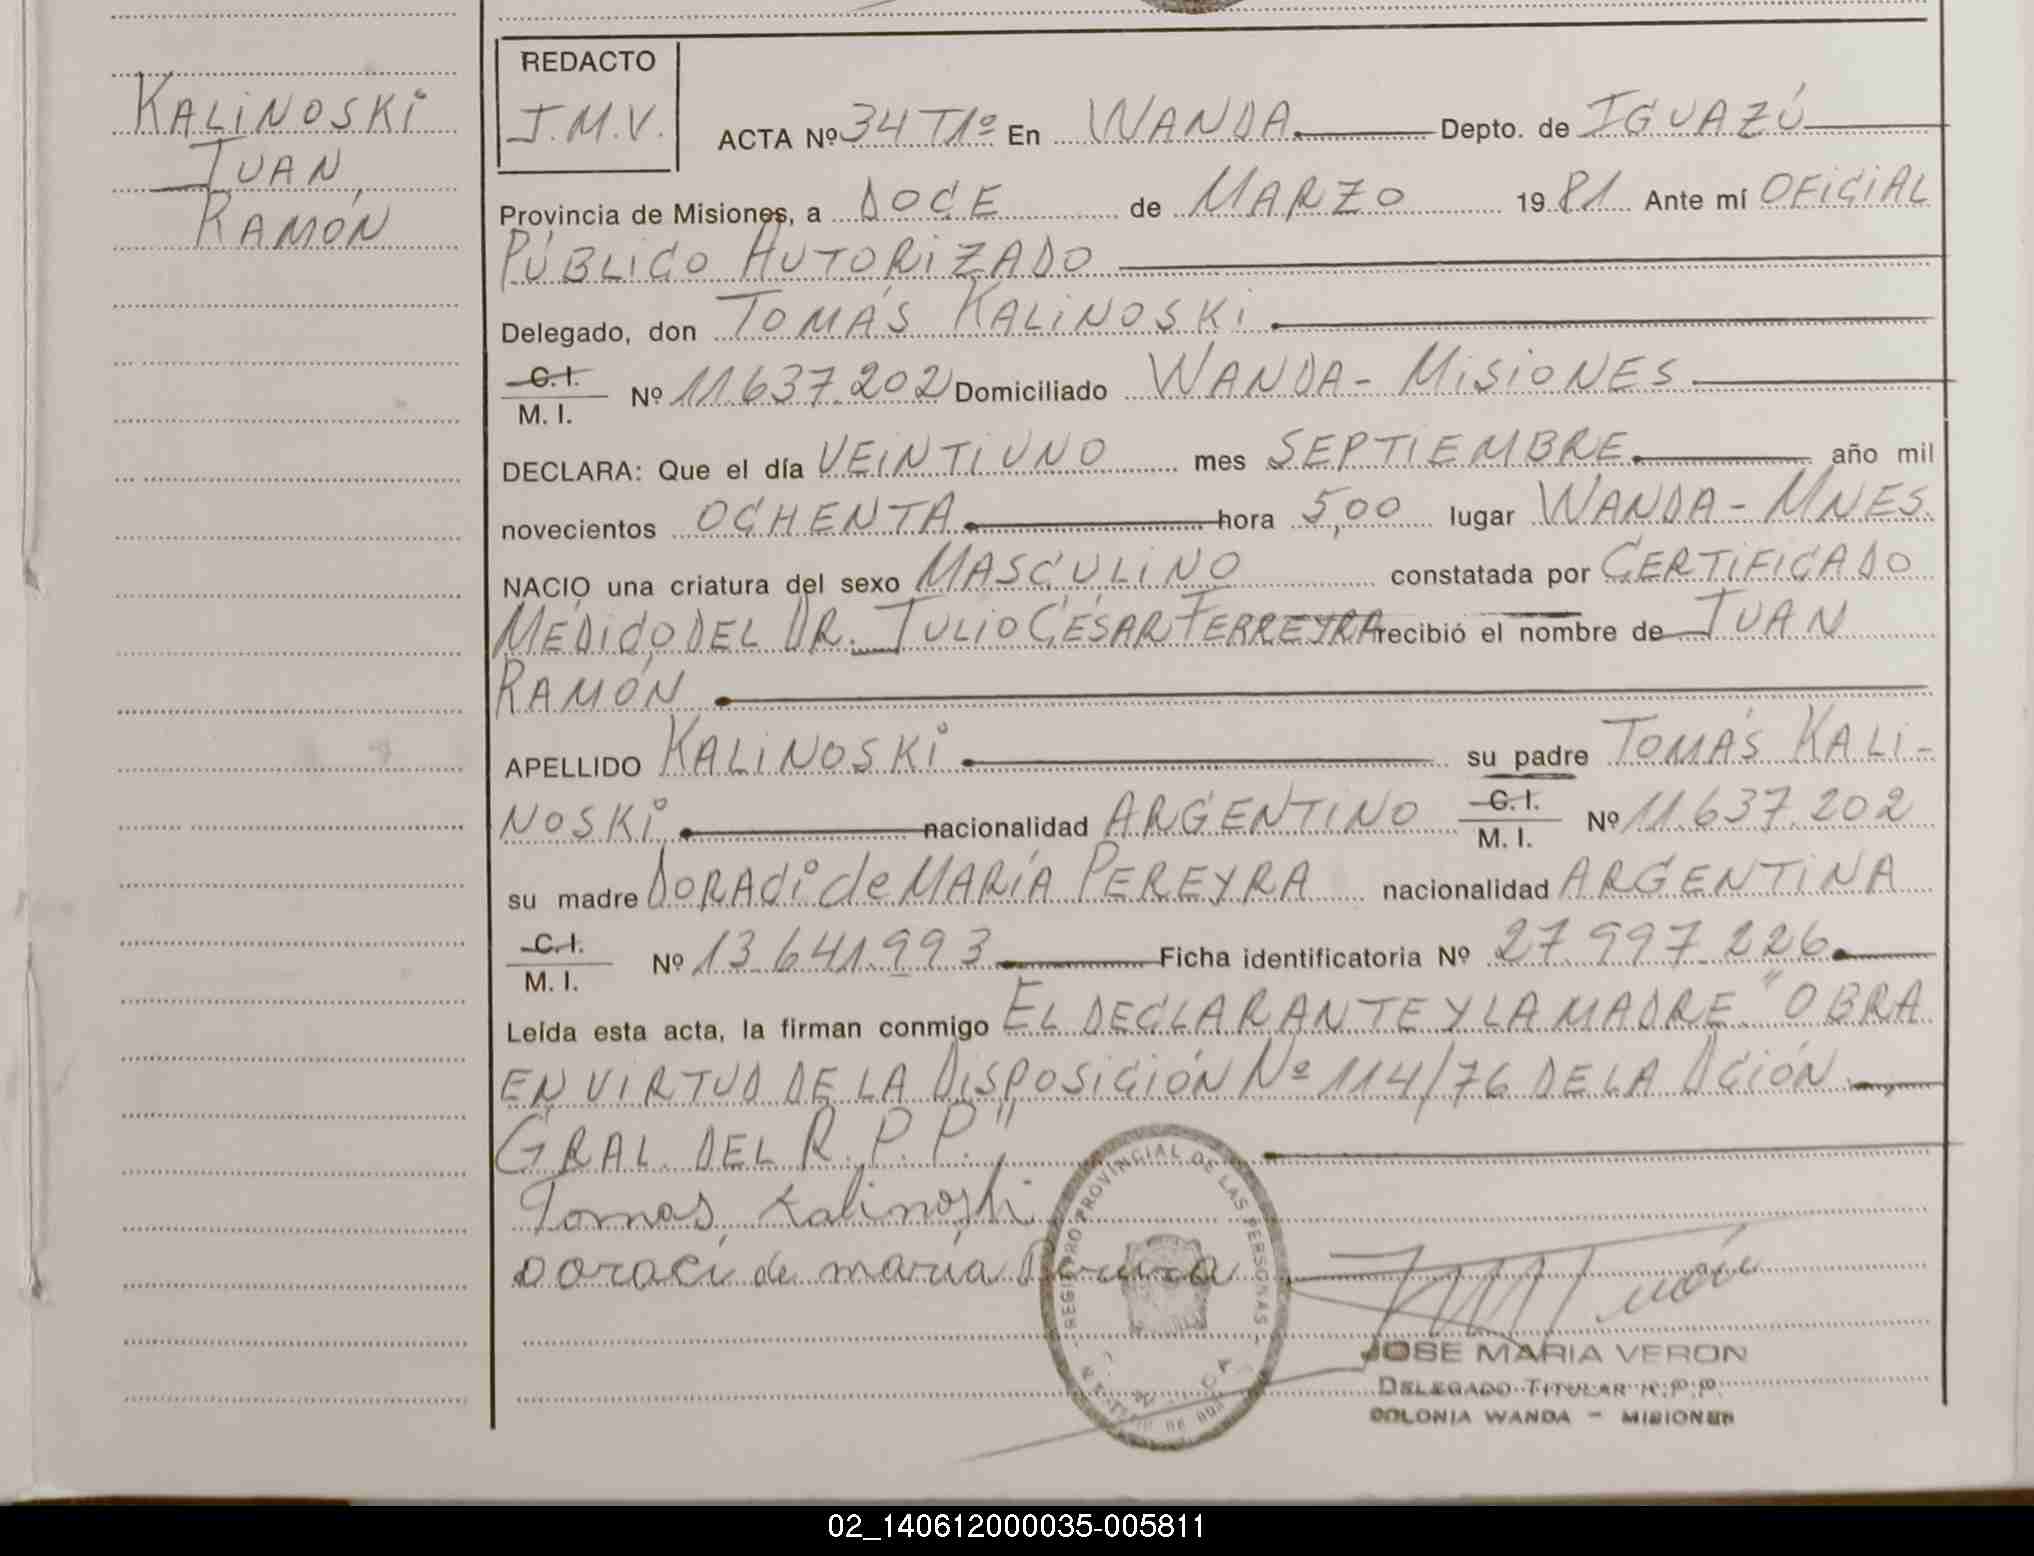 KALINOSKI
JUAN
RAMÓN
REDACTO
J.M.V.
ACTA Nº 34 T1º En WANDA Depto. de IGUAZÚ
Provincia de Misiones, a DOCE de MARZO 1981 Ante mí OFICIAL
PÚBLICO AUTORIZADO
Delegado, don TOMÁS KALINOSKI
C. I.
M. I. Nº 11.637.202 Domiciliado WANDA - MISIONES
DECLARA: Que el día VEINTIUNO mes SEPTIEMBRE año mil
novecientos OCHENTA hora 5,00 lugar WANDA - MNES.
NACIO una criatura del sexo MASCULINO constatada por CERTIFICADO
MÉDICO DEL DR. JULIO CÉSAR FERREYRA recibió el nombre de JUAN
RAMÓN
APELLIDO KALINOSKI su padre TOMÁS KALI-
NOSKI nacionalidad ARGENTINO C. I. M. I. Nº 11.637.202
su madre DORACI de MARÍA PEREYRA nacionalidad ARGENTINA
C. I.
M. I. Nº 13.641.993 Ficha identificatoria Nº 27.997.226
Leída esta acta, la firman conmigo EL DECLARANTE Y LA MADRE "OBRA
EN VIRTUD DE LA DISPOSICIÓN Nº 114/76 DE LA DCIÓN
GRAL. DEL R.P.P."
Tomas Kalinoski
Doraci de maria Pereira
REGISTRO PROVINCIAL DE LAS PERSONAS
JOSE MARIA VERON
DELEGADO TITULAR R.P.P.
COLONIA WANDA - MISIONES
02_140612000035-005811